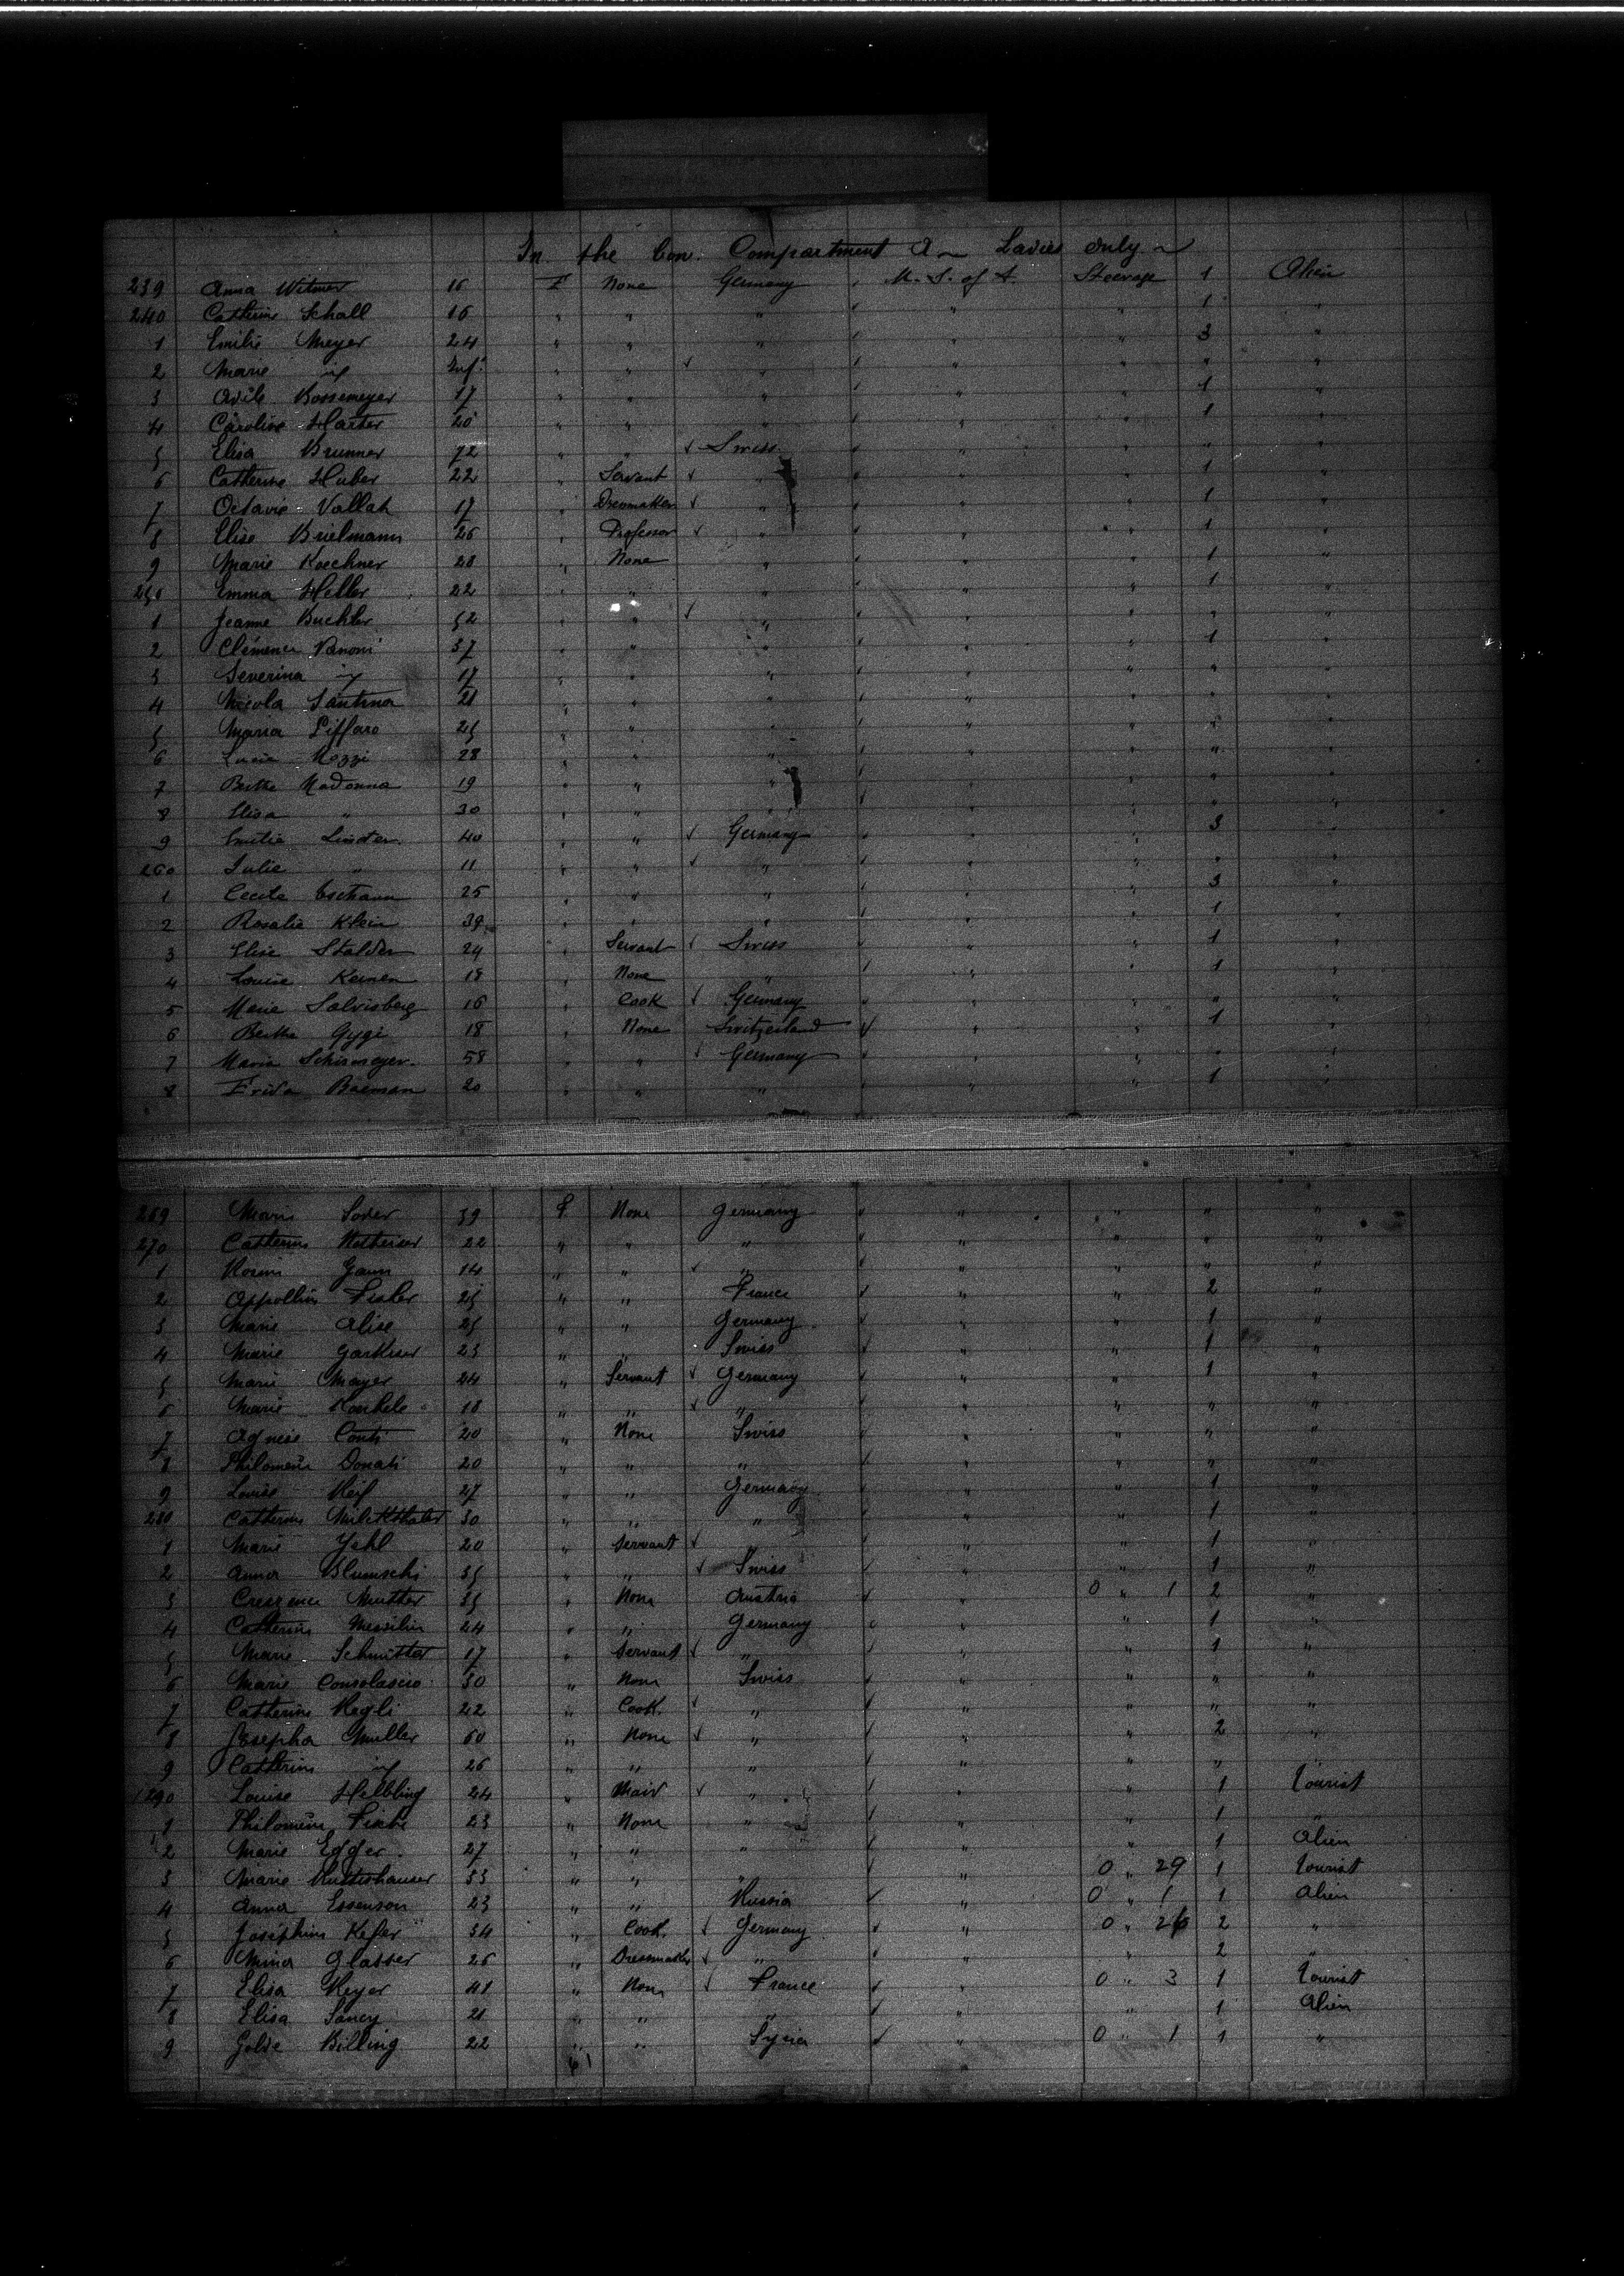 In the Con. Compartment A Ladies Only
239 Anna Witmer 16 F None Germany U. S. of A. Steerage 1 Alien
240 Catherine Schall 16 " " " " " 1 "
1 Emilie Meyer 24 " " " " " 3 "
2 Marie " Inf. " " " " " " "
3 Odile Bossemeyer 17 " " " " " 1 "
4 Caroline Harter 20 " " " " " 1 "
5 Elisa Brunner 72 " " Swiss " " " "
6 Catherine Huber 22 " Servant " " " 1 "
7 Octavie Vallat 17 " Dressmaker " " " 1 "
8 Elise Brielmann 26 " Professor " " " 1 "
9 Marie Koechner 28 " None " " " 1 "
250 Emma Heller 22 " " " " " 1 "
1 Jeanne Buchler 52 " " " " " " "
2 Clémence Vanoni 37 " " " " " 1 "
3 Severina " 17 " " " " " " "
4 Nicola Santina 21 " " " " " " "
5 Maria Piffaro 25 " " " " " " "
6 Lucia Mozzi 28 " " " " " " "
7 Berthe Madonna 19 " " " " " " "
8 Elisa " 30 " " " " " " "
9 Emilie Linder 40 " " Germany " " 3 "
260 Julie " 11 " " " " " " "
1 Cecile Eschann 25 " " " " " 3 "
2 Rosalie Klein 39 " " " " " 1 "
3 Elise Stalder 24 " Servant Swiss " " 1 "
4 Louise Keinen 18 " None " " " 1 "
5 Marie Salvisberg 16 " Cook Germany " " " "
6 Berthe Gygi 18 " None Switzerland " " 1 "
7 Maria Schirmeyer 58 " " Germany " " " "
8 Frida Baeman 20 " " " " " 1 "
269 Marie Soder 39 F None Germany " " " "
270 Catherine 22 " " " " " " "
1 Rosine Gann 14 " " " " " " "
2 Appolline Fisler 25 " " France " " 2 "
3 Marie Alise 25 " " Germany " " 1 "
4 Marie 23 " " Swiss " " 1 "
5 Marie Mayer 44 " Servant Germany " " 1 "
6 Marie 18 " " " " " " "
7 Agnese Conti 20 " None Swiss " " " "
8 Philomène Donati 20 " " " " " " "
9 Louise 27 " " Germany " " 1 "
280 Catherine 30 " " " " " 1 "
1 Marie Jehl 20 " Servant " " " 1 "
2 Anna Blumschi 35 " " Swiss " " 1 "
3 Crescence Mutter 35 " None Austria " 0 " 1 2 "
4 Catherine 24 " " Germany " " 1 "
5 Marie Schmitter 17 " Servant " " " 1 "
6 Marie Consolascio 30 " None Swiss " " " "
7 Catherine Hegli 22 " Cook " " " " "
8 Josepha Muller 60 " None " " " 2 "
9 Catherine " 26 " " " " " " "
290 Louise Helbling 24 " Maid " " " 1 Tourist
1 Philomène 23 " None " " " 1 "
2 Marie Egger 27 " " " " " 1 Alien
3 Marie 33 " " " " 0 " 29 1 Tourist
4 Anna Essenson 23 " " Russia " 0 " 1 1 Alien
5 Josephine Kefer 34 " Cook Germany " 0 " 2 "
6 Mina Glasser 26 " Dressmaker " " " 2 "
7 Elisa Meyer 41 " None France " 0 " 3 1 Tourist
8 Elisa Sancy 21 " " " " " 1 Alien
9 Golde Billing 22 " " Syria " 0 " 1 1 "
61